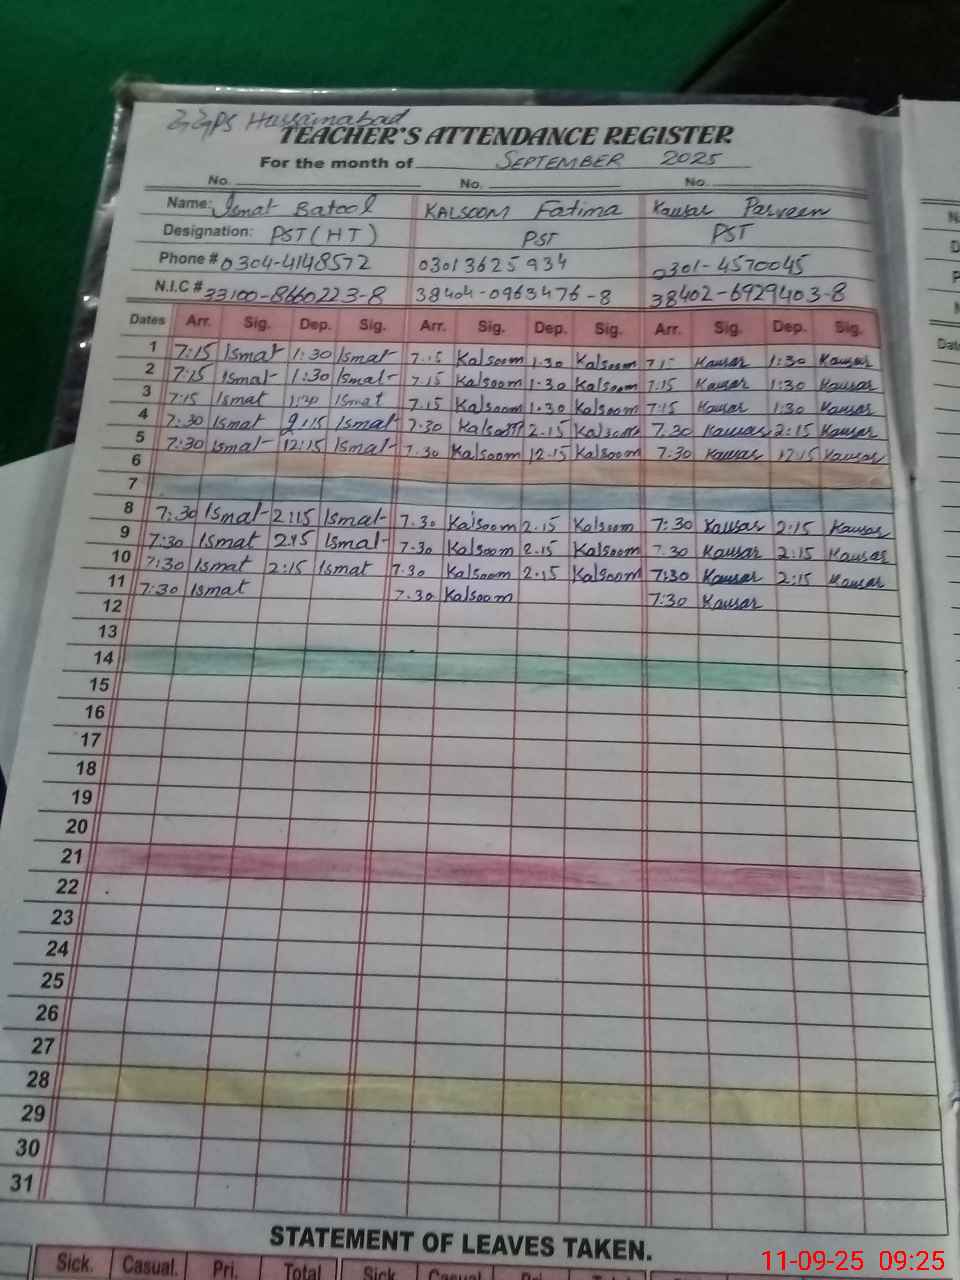 GGPS Hussainabad
TEACHER'S ATTENDANCE REGISTER
For the month of SEPTEMBER 2025
No. No. No.
Name: Ismat Batool KALSOOM Fatima Kausar Parveen
Designation: PST (HT) PST PST
Phone # 0304-4148572 03013625934 0301-4570045
N.I.C # 33100-8660223-8 38404-0963476-8 38402-6929403-8
Dates Arr. Sig. Dep. Sig. Arr. Sig. Dep. Sig. Arr. Sig. Dep. Sig.
1 7:15 Ismat 1:30 Ismat 7.15 Kalsoom 1.30 Kalsoom 7:15 Kausar 1:30 Kausar
2 7:15 Ismat 1:30 Ismat 7.15 Kalsoom 1.30 Kalsoom 7:15 Kausar 1:30 Kausar
3 7:15 Ismat 1:30 Ismat 7.15 Kalsoom 1.30 Kalsoom 7:15 Kausar 1:30 Kausar
4 7:30 Ismat 2:15 Ismat 7.30 Kalsoom 2.15 Kalsoom 7.30 Kausar 2:15 Kausar
5 7:30 Ismat 12:15 Ismat 7.30 Kalsoom 12.15 Kalsoom 7:30 Kausar 12:15 Kausar
6
7
8 7:30 Ismat 2:15 Ismat 7.30 Kalsoom 2.15 Kalsoom 7:30 Kausar 2:15 Kausar
9 7:30 Ismat 2:15 Ismat 7.30 Kalsoom 2.15 Kalsoom 7.30 Kausar 2:15 Kausar
10 7:30 Ismat 2:15 Ismat 7.30 Kalsoom 2.15 Kalsoom 7:30 Kausar 2:15 Kausar
11 7:30 Ismat 7.30 Kalsoom 7:30 Kausar
12
13
14
15
16
17
18
19
20
21
22
23
24
25
26
27
28
29
30
31
STATEMENT OF LEAVES TAKEN.
Sick. Casual. Pri. Total Sick Casual
11-09-25 09:25